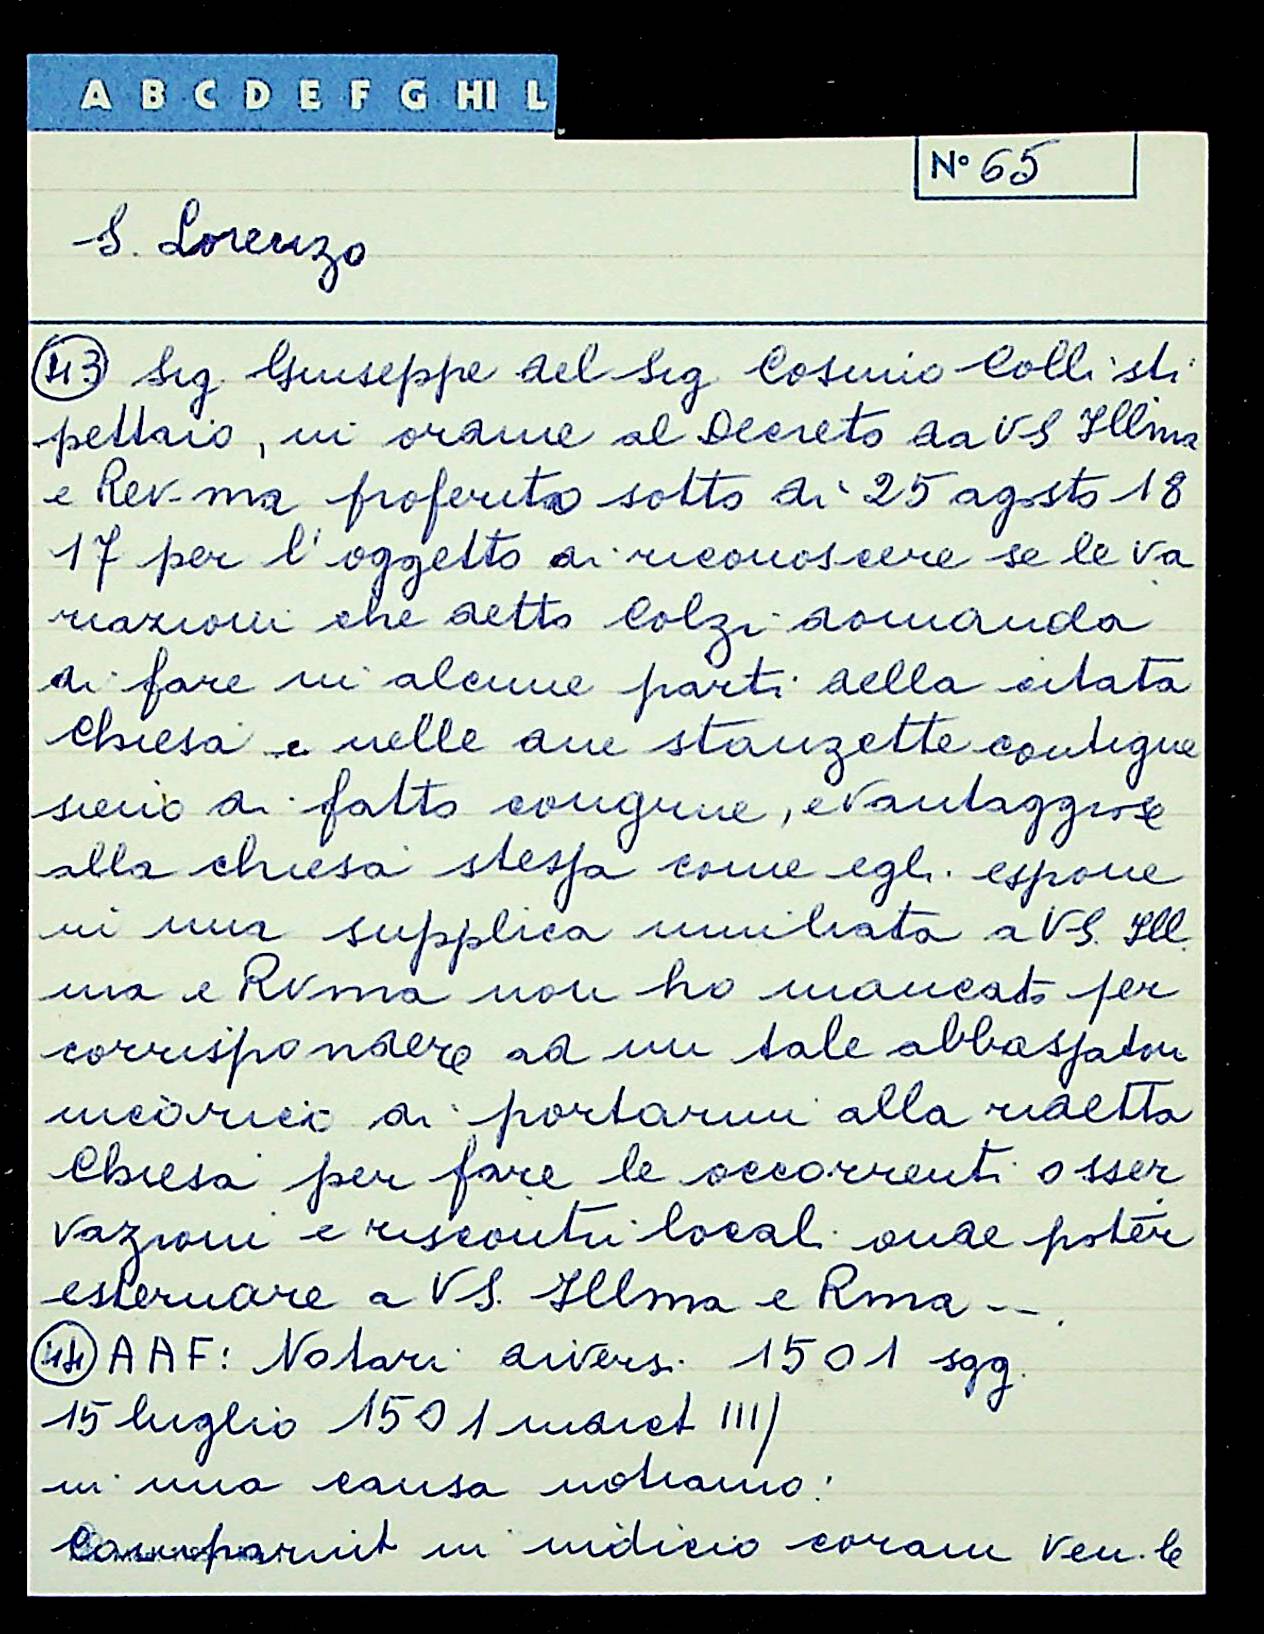 A B C D E F G HI L
N° 65
S. Lorenzo
43 Sig. Giuseppe del Sig Cosimo Colli sti
pettaio, in ordine al Decreto da VS Illma
e Rev-ma proferito sotto di 25 agosto 18
17 per l'oggetto di riconoscere se le va
riazioni che detto Colzi domanda
di fare in alcune parti della citata
Chiesa e nelle due stanzette contigue
sieno di fatto congrue, e vantaggiose
alla chiesa stessa come egli espone
in una supplica umiliata a VS. Ill
ma e Rvma non ho mancato per
corrispondere ad un tale
incarico di portarmi alla ridetta
Chiesa per fare le occorrenti osser
vazioni e riscontri locali onde poter
esternare a VS. Illma e Rma --.
44 AAF: Notari diversi 1501 sgg.
15 luglio 1501 indict III/
in una causa notiamo:
Comparuit in indicio coram Ven.le